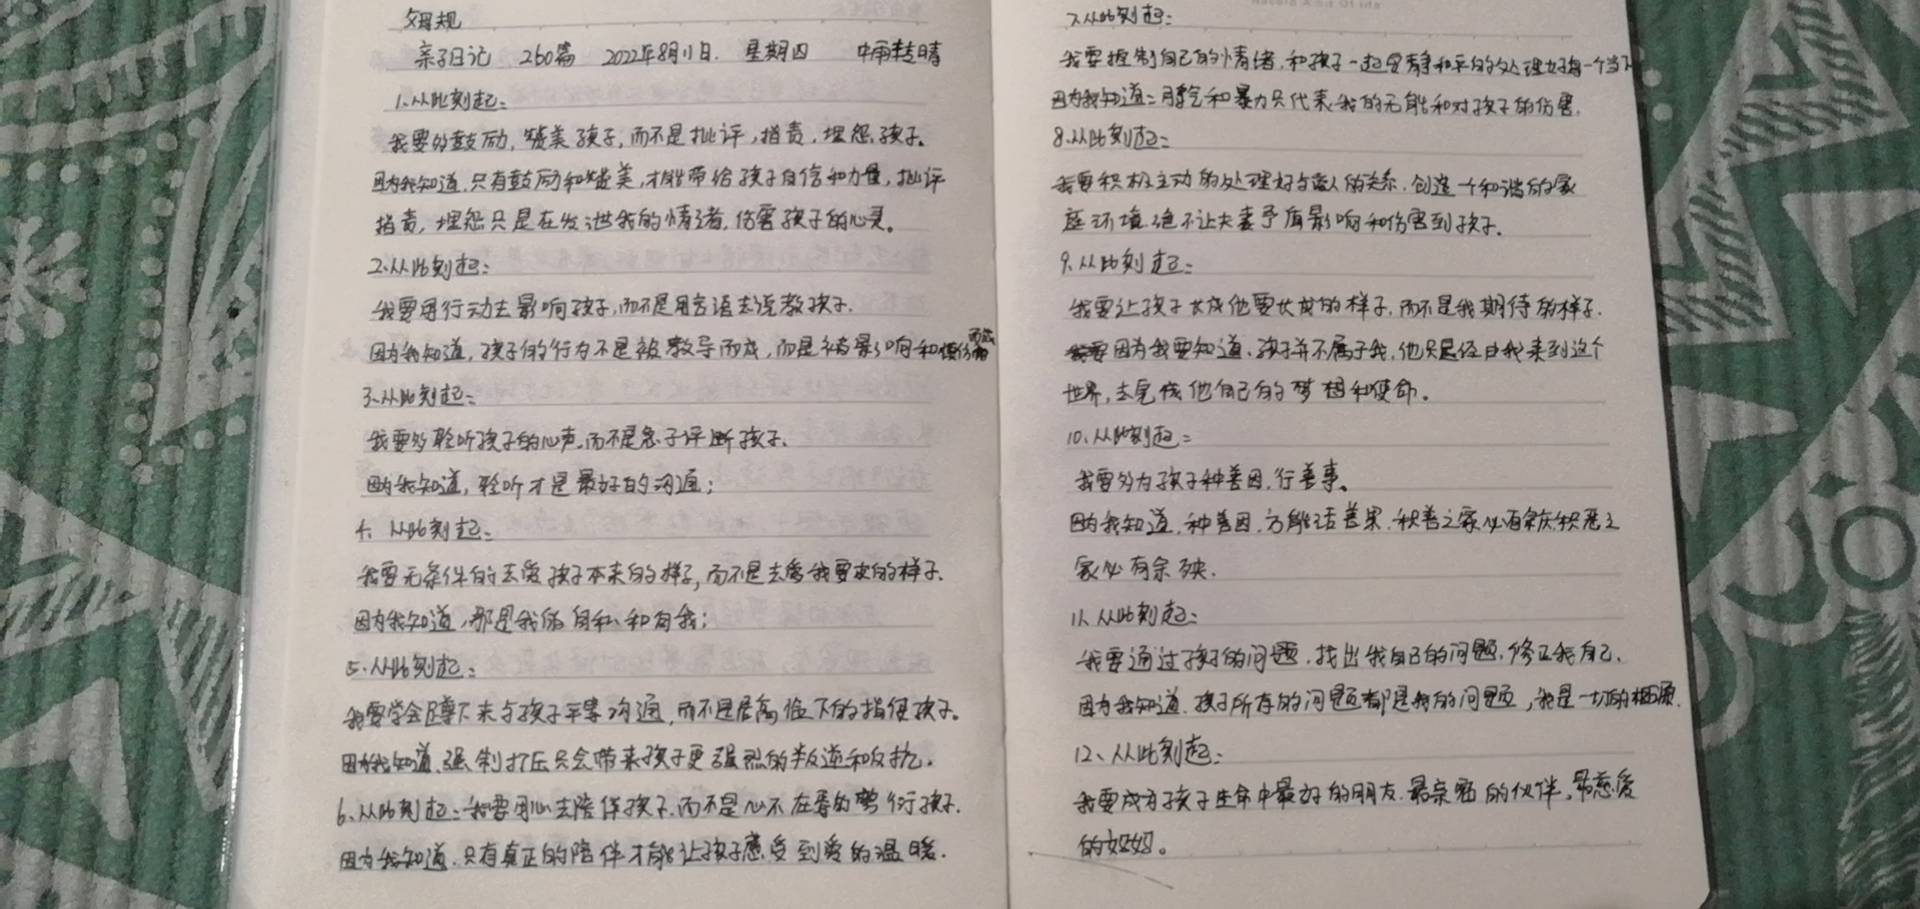 父母规
亲子日记 260篇 2022年8月11日. 星期四 中雨转晴
1.从此刻起:
我要多鼓励,赞美孩子,而不是批评,指责,埋怨孩子。
因为我知道,只有鼓励和赞美,才能带给孩子自信和力量,批评
指责,埋怨只是在发泄我的情绪,伤害孩子的心灵。
2.从此刻起:
我要用行动去影响孩子,而不是用言语去说教孩子.
因为我知道,孩子的行为不是被教导而成,而是被影响和模仿而成
3.从此刻起:
我要多聆听孩子的心声,而不是急于评断孩子.
因为我知道,聆听才是最好的沟通;
4. 从此刻起:
我要无条件的去爱孩子本来的样子,而不是去爱我要求的样子.
因为我知道,那是我的自私和自我;
5.从此刻起:
我要学会蹲下来与孩子平等沟通,而不是居高临下的指使孩子。
因为我知道,强制打压只会带来孩子更强烈的叛逆和反抗.
6、从此刻起:我要用心去陪伴孩子,而不是心不在焉的敷衍孩子.
因为我知道,只有真正的陪伴才能让孩子感受到爱的温暖.
7.从此刻起:
我要控制自己的情绪,和孩子一起安静和平的处理好每一个当下
因为我知道:脾气和暴力只代表我的无能和对孩子的伤害.
8.从此刻起:
我要积极主动的处理好与爱人的关系,创造一个和谐的家
庭环境,绝不让夫妻矛盾影响和伤害到孩子.
9.从此刻起:
我要让孩子长成他要长成的样子,而不是我期待的样子.
因为我要知道、孩子并不属于我,他只是经由我来到这个
世界,去完成他自己的梦想和使命.
10、从此刻起:
我要多为孩子种善因,行善事。
因为我知道,种善因,方能结善果.积善之家必有余庆积恶之
家必有余殃.
11.从此刻起:
我要通过孩子的问题,找出我自己的问题,修正我自己.
因为我知道.孩子所有的问题都是我的问题,我是一切的根源.
12、从此刻起:
我要成为孩子生命中最好的朋友.最亲密的伙伴,最慈爱
的妈妈。